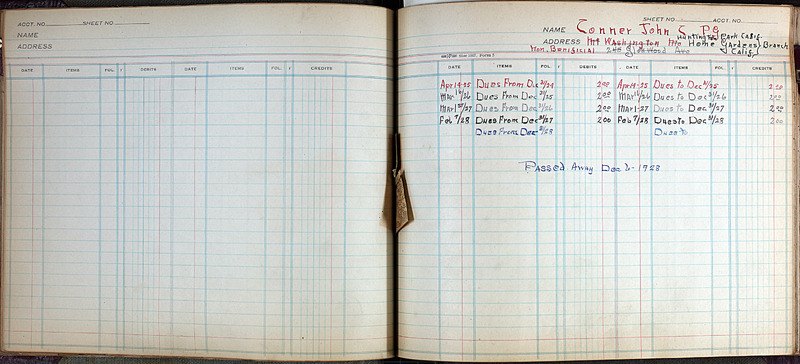 ACCT. NO. SHEET NO.
NAME
ADDRESS
DATE ITEMS FOL. DEBITS DATE ITEMS FOL. CREDITS
SHEET NO. ACCT. NO.
NAME Conner John C. PG
Huntington Park Calif.
ADDRESS Mt Washington Mo Home Gardens Branch
Non. Benificial Wood Ave Calif.
DATE ITEMS FOL. DEBITS DATE ITEMS FOL. CREDITS
Apr 14-25 Dues From Dec 31/24 2.00 Apr 14-25 Dues to Dec 31/25 2.00
Mar 16/26 Dues From Dec 31/25 2.00 Mar 16/26 Dues to Dec 31/26 2.00
Dues From Dec 31/26 2.00 Mar 1-27 Dues to Dec 31/27 2.00
Feb 7/28 Dues From Dec 31/27 2.00 Feb 7/28 Dues to Dec 31/28 2.00
Dues From Dec 31/28 Dues to
Passed Away Dec 6-1928